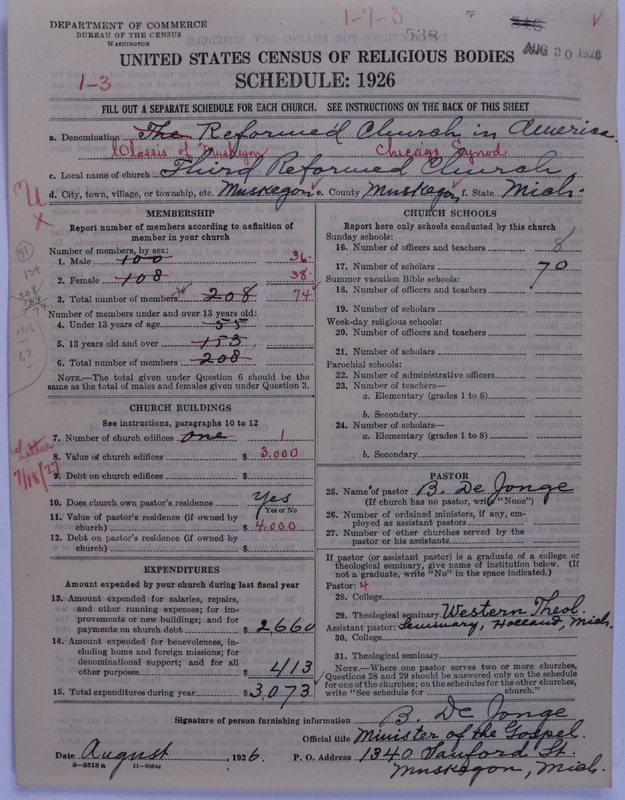 1-7-3
538
DEPARTMENT OF COMMERCE
BUREAU OF THE CENSUS
WASHINGTON
AUG 30 1926
UNITED STATES CENSUS OF RELIGIOUS BODIES
1-3
SCHEDULE: 1926
FILL OUT A SEPARATE SCHEDULE FOR EACH CHURCH. SEE INSTRUCTIONS ON THE BACK OF THIS SHEET
a. Denomination The Reformed Church in America
Classis of Muskegon Chicago Synod
c. Local name of church Third Reformed Church
d. City, town, village, or township, etc. Muskegon e. County Muskegon f. State Mich.
MEMBERSHIP
Report number of members according to definition of member in your church
Number of members, by sex:
1. Male 100 36
2. Female 108 38
3. Total number of members 208 74
Number of members under and over 13 years old:
4. Under 13 years of age 55
5. 13 years old and over 153
6. Total number of members 208
NOTE.—The total given under Question 6 should be the same as the total of males and females given under Question 3.
CHURCH BUILDINGS
See instructions, paragraphs 10 to 12
7. Number of church edifices one 1
8. Value of church edifices $ 3,000
9. Debt on church edifices $
10. Does church own pastor's residence Yes
Yes or No
11. Value of pastor's residence (if owned by church) $ 4,000
12. Debt on pastor's residence (if owned by church) $
Letter
EXPENDITURES
Amount expended by your church during last fiscal year
13. Amount expended for salaries, repairs, and other running expenses; for improvements or new buildings; and for payments on church debt $ 2660
14. Amount expended for benevolences, including home and foreign missions; for denominational support; and for all other purposes $ 413
15. Total expenditures during year $ 3,073
CHURCH SCHOOLS
Report here only schools conducted by this church
Sunday schools:
16. Number of officers and teachers 8
17. Number of scholars 70
Summer vacation Bible schools:
18. Number of officers and teachers
19. Number of scholars
Week-day religious schools:
20. Number of officers and teachers
21. Number of scholars
Parochial schools:
22. Number of administrative officers
23. Number of teachers—
a. Elementary (grades 1 to 8)
b. Secondary
24. Number of scholars—
a. Elementary (grades 1 to 8)
b. Secondary
PASTOR
25. Name of pastor B. De Jonge
(If church has no pastor, write "None")
26. Number of ordained ministers, if any, employed as assistant pastors
27. Number of other churches served by the pastor or his assistants
If pastor (or assistant pastor) is a graduate of a college or theological seminary, give name of institution below. (If not a graduate, write "No" in the space indicated.)
Pastor: 4
28. College
29. Theological seminary Western Theol.
Assistant pastor: Seminary, Holland, Mich.
30. College
31. Theological seminary
NOTE.—Where one pastor serves two or more churches, Questions 28 and 29 should be answered only on the schedule for one of the churches; on the schedules for the other churches, write "See schedule for church."
Signature of person furnishing information B. De Jonge
Official title Minister of the Gospel
Date August, 1926. P. O. Address 1340 Sanford St.
8-5518a 11-9054a Muskegon, Mich.